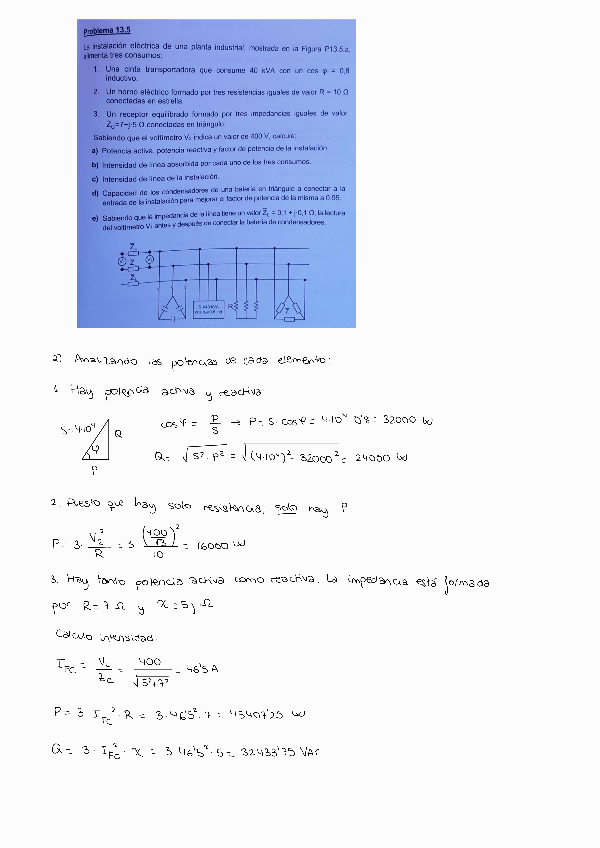 Problema 13.5
La instalación eléctrica de una planta industrial, mostrada en la Figura P13.5.a,
alimenta tres consumos:
1. Una cinta transportadora que consume 40 kVA con un cos φ = 0,8
inductivo.
2. Un horno eléctrico formado por tres resistencias iguales de valor R = 10 Ω
conectadas en estrella.
3. Un receptor equilibrado formado por tres impedancias iguales de valor
Z̅c=7+j·5 Ω conectadas en triángulo.
Sabiendo que el voltímetro V₂ indica un valor de 400 V, calcule:
a) Potencia activa, potencia reactiva y factor de potencia de la instalación.
b) Intensidad de línea absorbida por cada uno de los tres consumos.
c) Intensidad de línea de la instalación.
d) Capacidad de los condensadores de una batería en triángulo a conectar a la
entrada de la instalación para mejorar el factor de potencia de la misma a 0,95.
e) Sabiendo que la impedancia de la línea tiene un valor Z̅L = 0,1 + j·0,1 Ω, la lectura
del voltímetro V₁ antes y después de conectar la batería de condensadores.
R
a) Analizando las potencias de cada elemento:
1. Hay potencia activa y reactiva
S=4·10⁴ Q φ P
cos φ = P/S → P = S · cos φ = 4·10⁴ · 0'8 = 32000 W
Q = √(S² - P²) = √((4·10⁴)² - 32000²) = 24000 W
2. Puesto que hay solo resistencia, solo hay P
P = 3 · V₂²/R = 3 · (400/√3)²/10 = 16000 W
3. Hay tanto potencia activa como reactiva. La impedancia está formada
por R = 7 Ω y X = 5j Ω
Calculo intensidad:
I_FC = V_L/Z_C = 400/√(5²+7²) = 46'5 A
P = 3 · I_FC² · R = 3 · 46'5² · 7 = 45407'25 W
Q = 3 · I_FC² · X = 3 · 46'5² · 5 = 32433'75 VAr